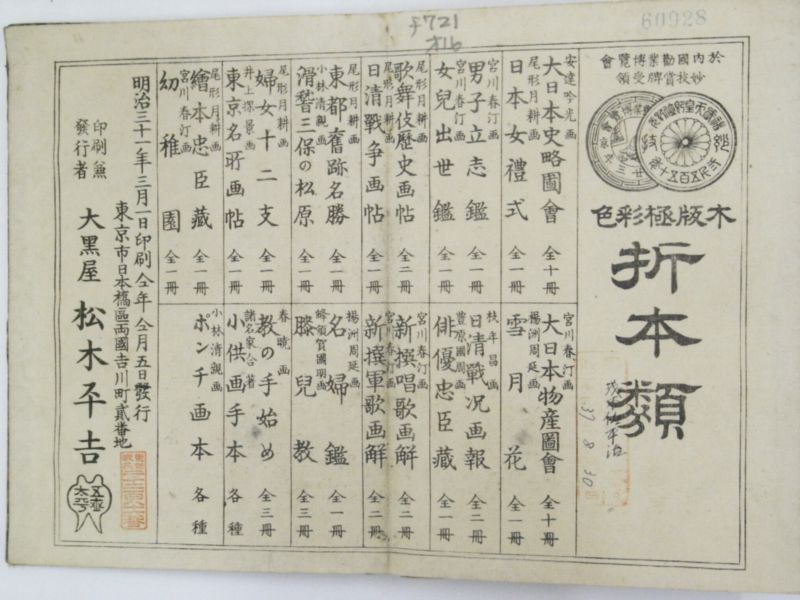 チ721
オ16
60928
於内国勧業博覧會
妙技賞牌受領
木版極彩色
折本類
37 8 30
安達吟光画
大日本史略圖會 全十冊
尾形月耕画
日本女禮式 全一冊
宮川春汀画
男子立志鑑 全一冊
宮川春汀画
女兒出世鑑 全一冊
尾形月耕画
歌舞伎歴史画帖 全二冊
尾形月耕画
日清戰争画帖 全一冊
尾形月耕画
東都舊跡名勝 全一冊
小林清親画
滑稽三保の松原 全一冊
尾形月耕画
婦女十二支 全一冊
井上探景画
東京名所画帖 全一冊
尾形月耕画
繪本忠臣藏 全一冊
宮川春汀画
幼稚園 全一冊
宮川春汀画
大日本物産圖會 全十冊
楊洲周延画
雪月花 全一冊
枝年昌画
日清戰况画報 全二冊
豊原國周画
俳優忠臣藏 全一冊
宮川春汀画
新撰唱歌画解 全二冊
宮川春汀画
新撰軍歌画解 全二冊
楊洲周延画
名婦鑑 全一冊
膝兒教 全三冊
春暁画
教の手始め 全三冊
諸名家合著
小供画手本 各種
小林清親画
ポンチ画本 各種
明治三十一年三月一日印刷 仝年仝月五日發行
東京市日本橋區両國吉川町貳番地
印刷兼
發行者
大黒屋 松木平吉